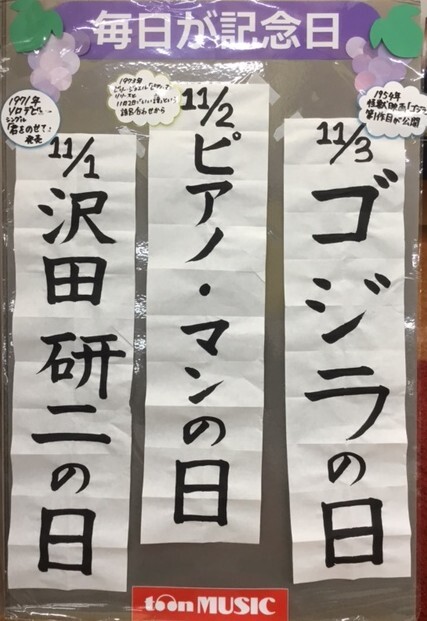 毎日が記念日
1971年
ソロデビュー
シングル
「君をのせて」
発売
11/1
沢田研二の日
1973年
リリース
語呂合わせから
11/2
ピアノ・マンの日
1954年
怪獣映画「ゴジラ」
第1作目が公開
11/3
ゴジラの日
toon MUSIC